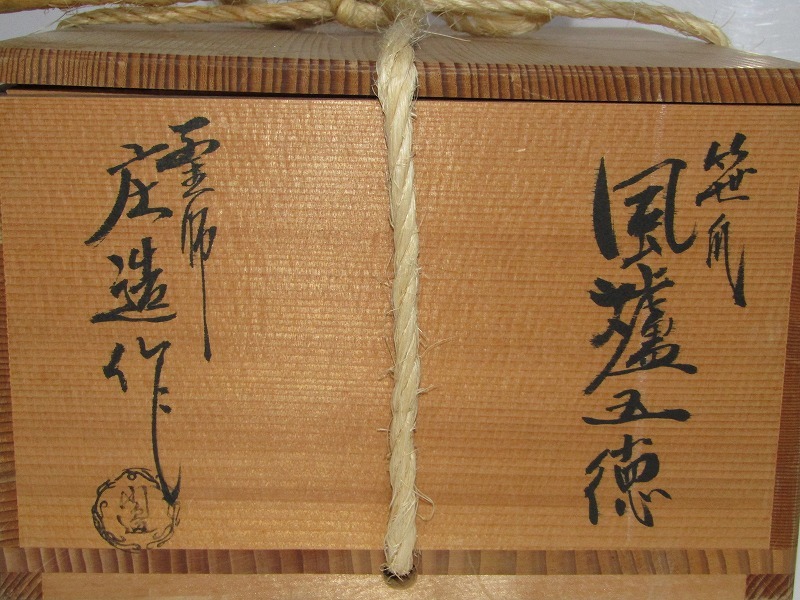 笹爪
風爐五徳
釜師
庄造作